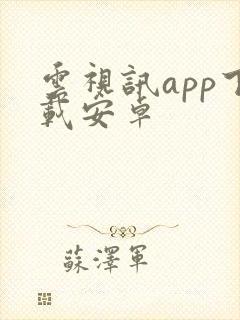 雲視訊app下
載安卓
蘇澤軍